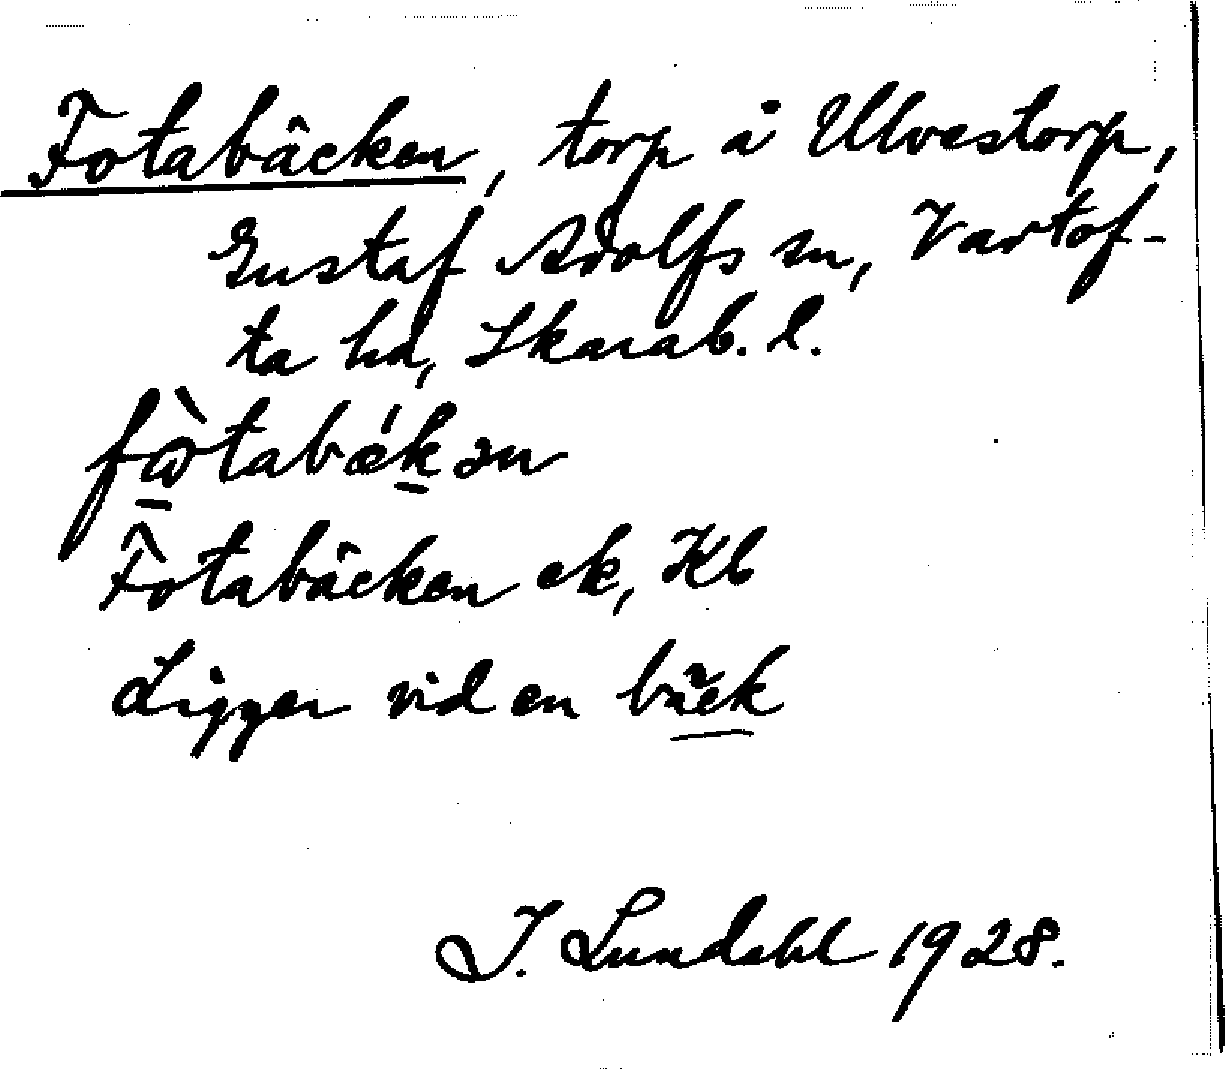 Fotabäcken, torp å Ulvestorp,
Gustaf Adolfs sn, Vartof-
ta hd, Skarab. l.
fὼtabǽkən
Fotabäcken ek, Kb
Ligger vid en bäck
I. Lundahl 1928.